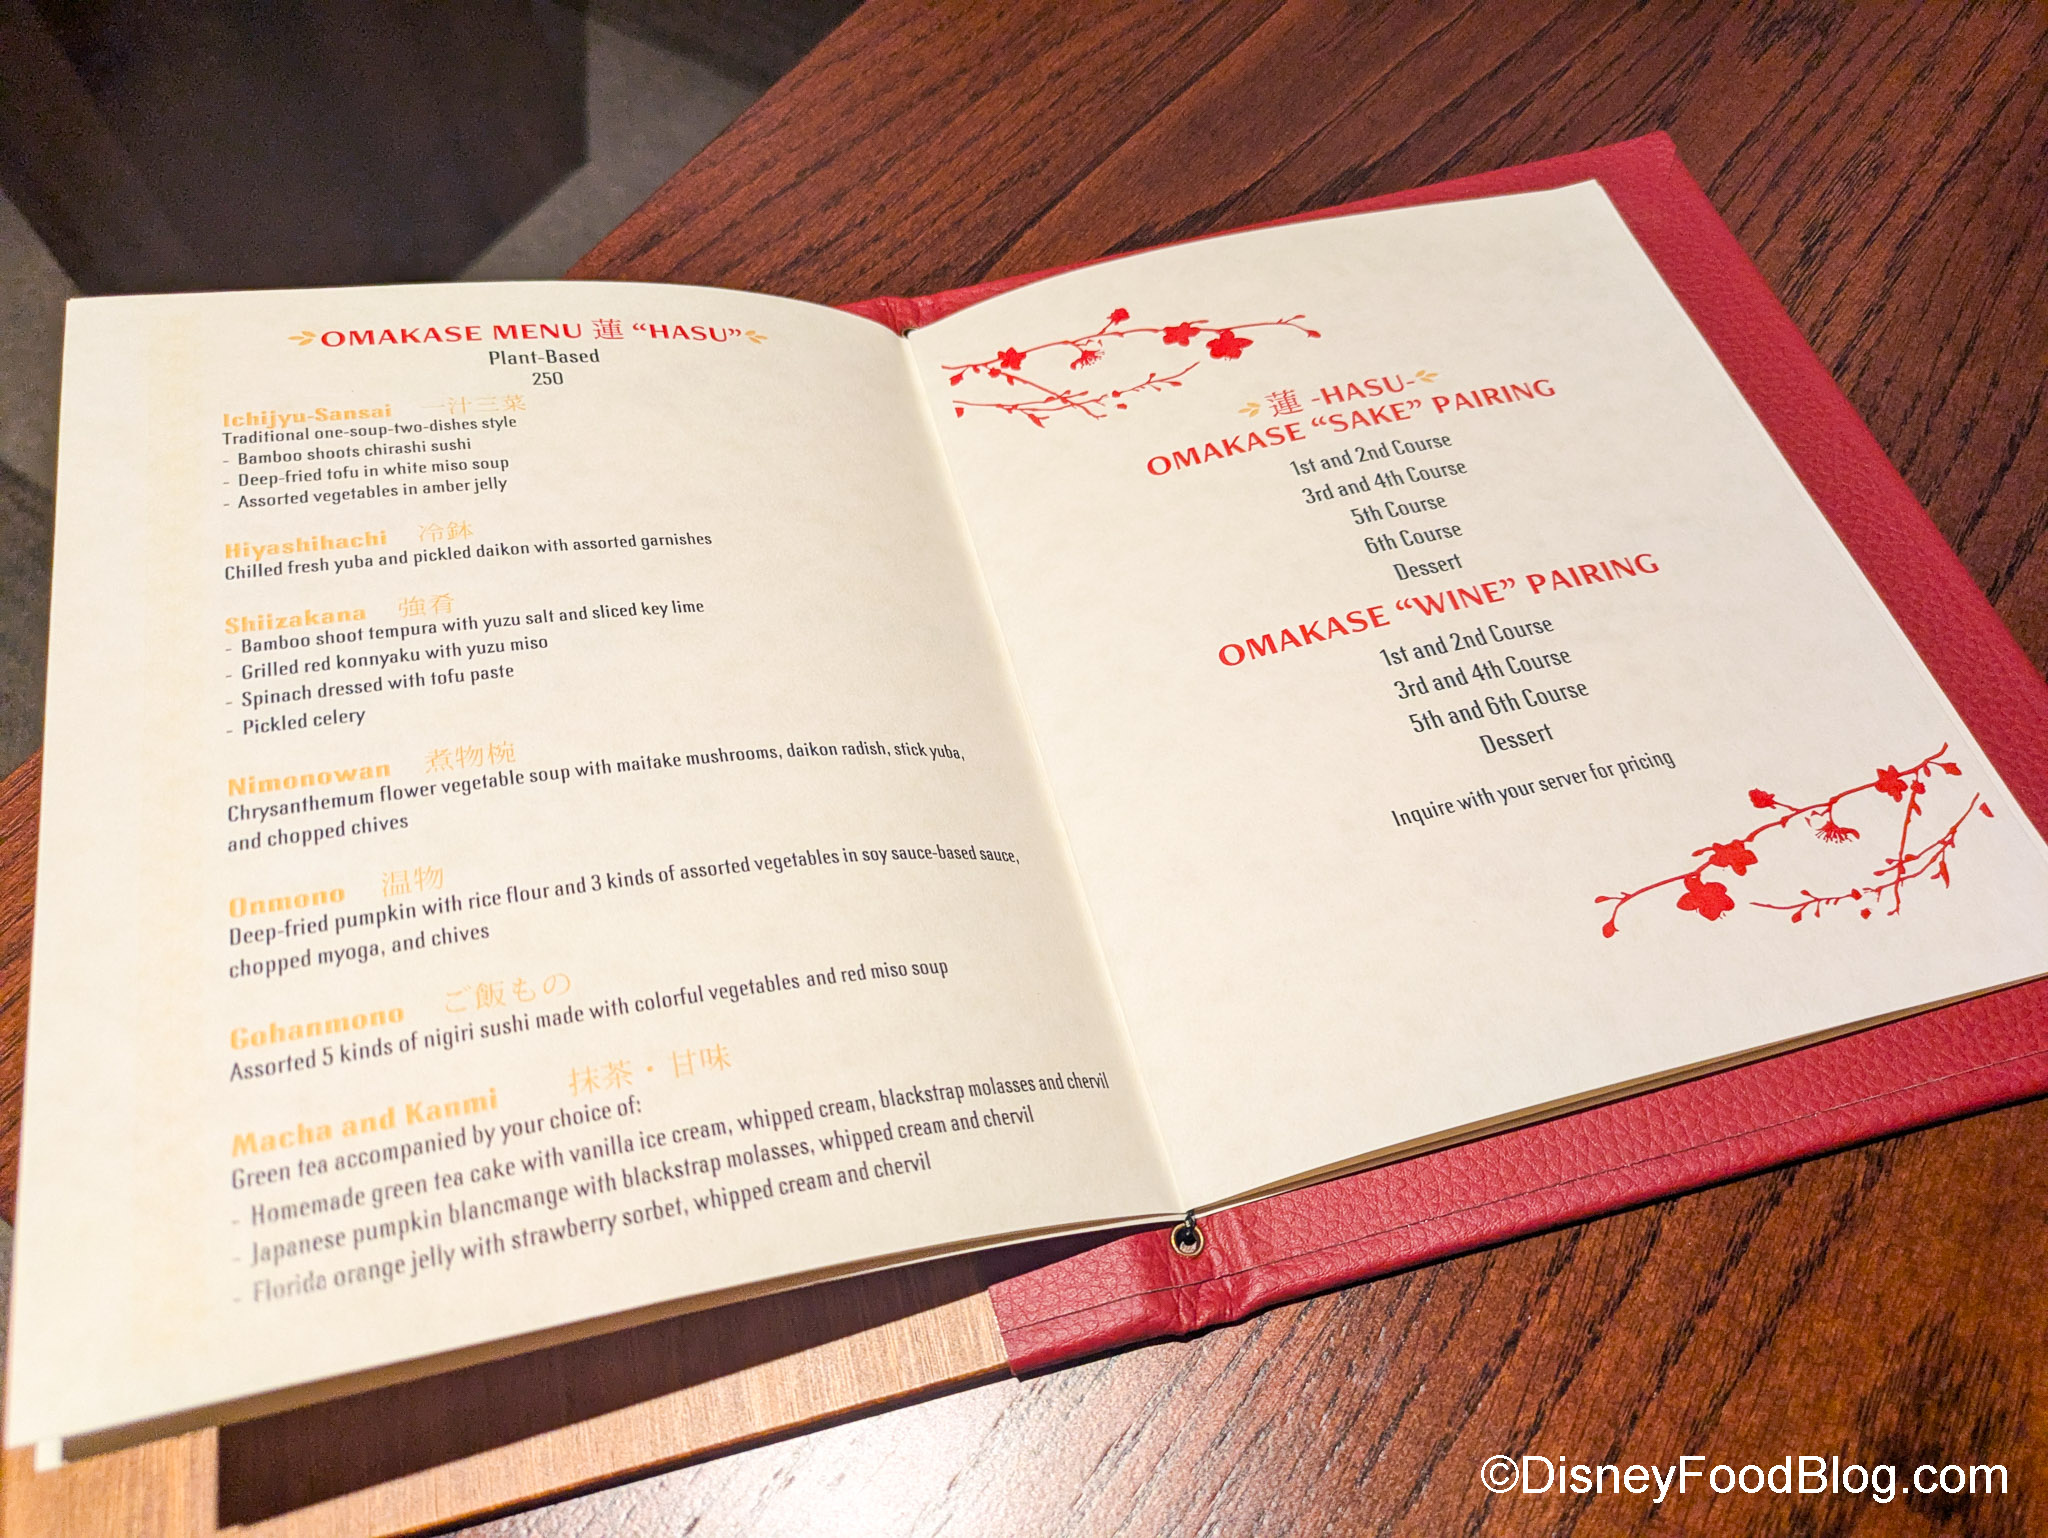 OMAKASE MENU 蓮 “HASU”
Plant-Based
250
Ichijyu-Sansai 一汁三菜
Traditional one-soup-two-dishes style
- Bamboo shoots chirashi sushi
- Deep-fried tofu in white miso soup
- Assorted vegetables in amber jelly
Hiyashihachi 冷鉢
Chilled fresh yuba and pickled daikon with assorted garnishes
Shiizakana 強肴
- Bamboo shoot tempura with yuzu salt and sliced key lime
- Grilled red konnyaku with yuzu miso
- Spinach dressed with tofu paste
- Pickled celery
Nimonowan 煮物椀
Chrysanthemum flower vegetable soup with maitake mushrooms, daikon radish, stick yuba,
and chopped chives
Onmono 温物
Deep-fried pumpkin with rice flour and 3 kinds of assorted vegetables in soy sauce-based sauce,
chopped myoga, and chives
Gohanmono ご飯もの
Assorted 5 kinds of nigiri sushi made with colorful vegetables and red miso soup
Macha and Kanmi 抹茶・甘味
Green tea accompanied by your choice of:
- Homemade green tea cake with vanilla ice cream, whipped cream, blackstrap molasses and chervil
- Japanese pumpkin blancmange with blackstrap molasses, whipped cream and chervil
- Florida orange jelly with strawberry sorbet, whipped cream and chervil
蓮 -HASU-
OMAKASE “SAKE” PAIRING
1st and 2nd Course
3rd and 4th Course
5th Course
6th Course
Dessert
OMAKASE “WINE” PAIRING
1st and 2nd Course
3rd and 4th Course
5th and 6th Course
Dessert
Inquire with your server for pricing
©DisneyFoodBlog.com